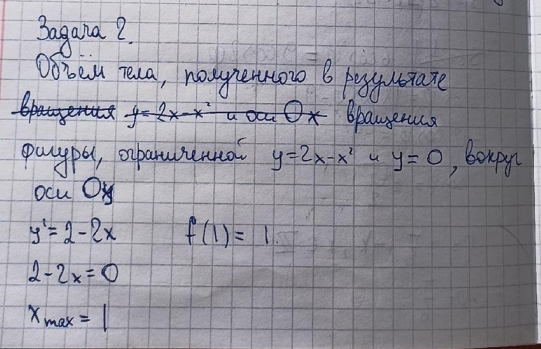 Задача 2.
Объём тела, полученного в результате
вращения y=2x-x² и оси Ox вращения
фигуры, ограниченной y=2x-x² и y=0, вокруг
оси Oy
y'=2-2x f(1)= 1
2-2x=0
x max = 1